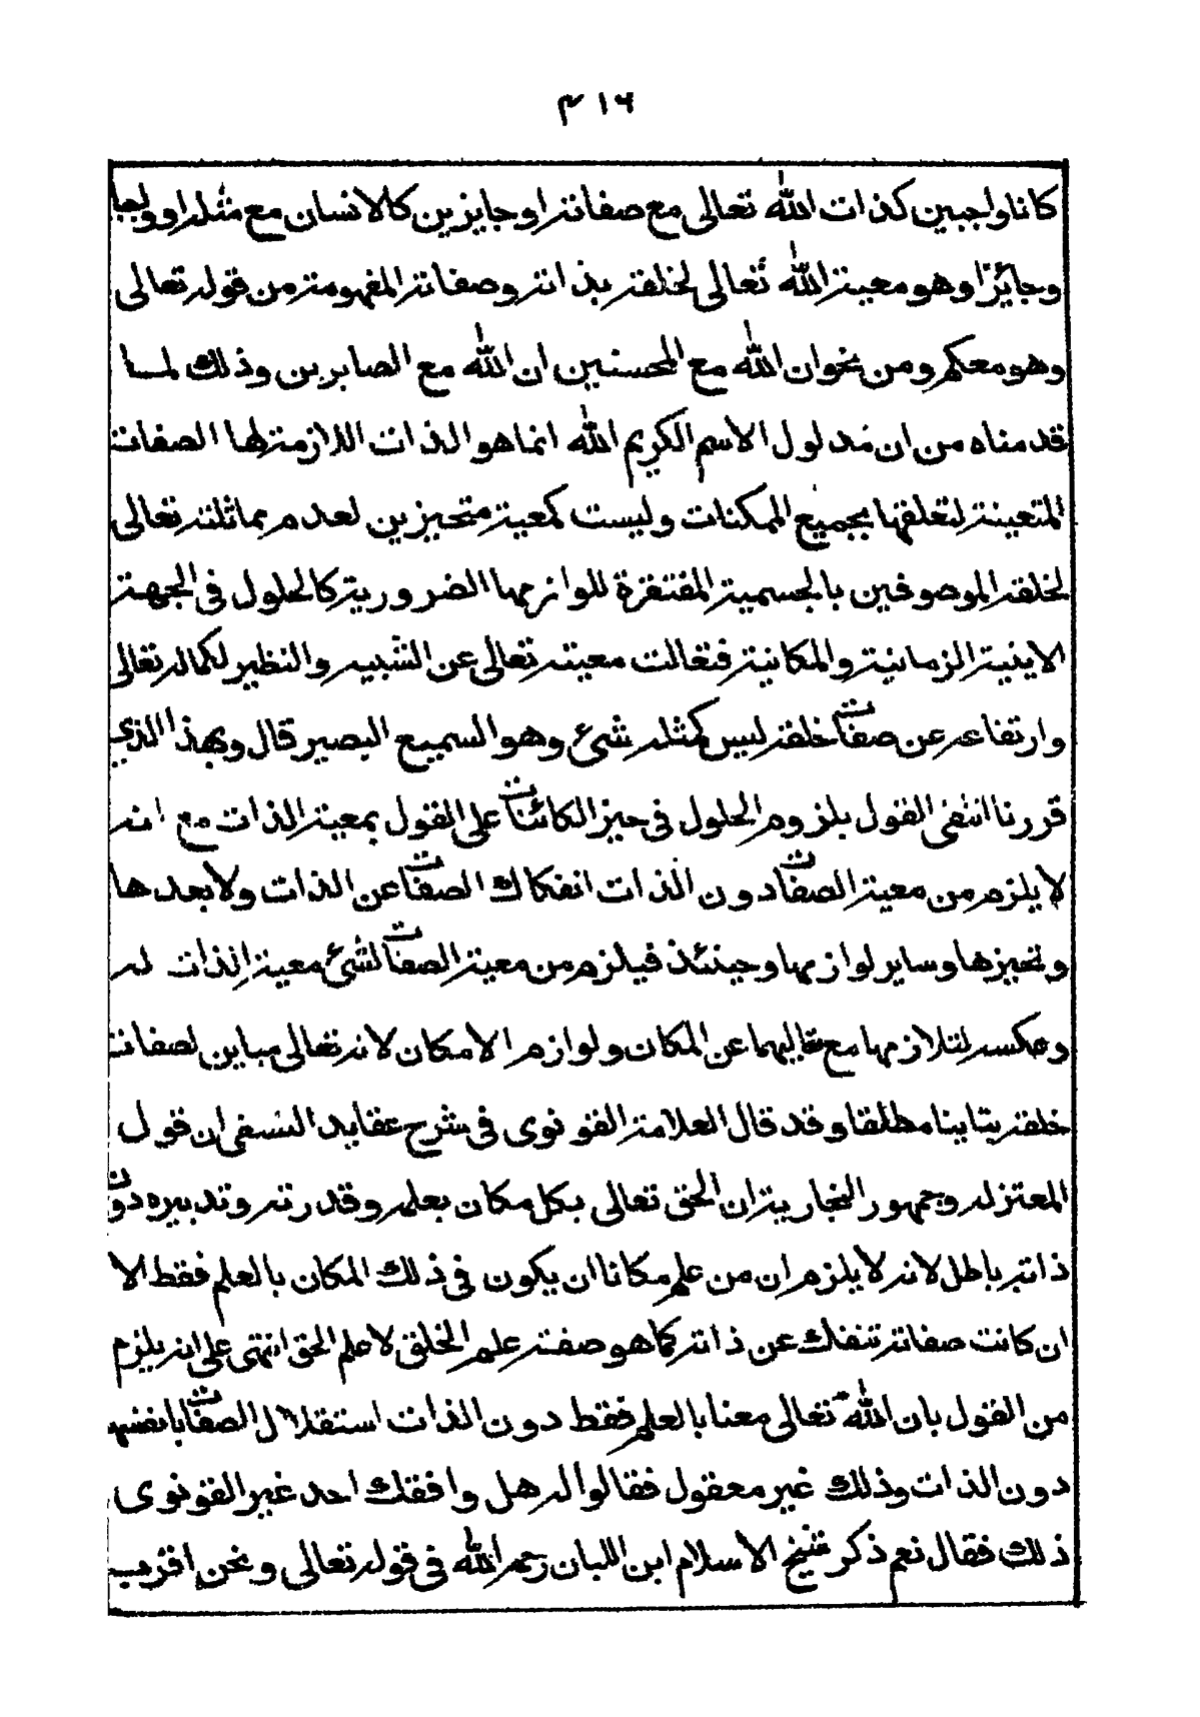 ٣١٦
كانا واجبين كذات الله تعالى مع صفاته او جايزين كالانسان مع مثله او واجبا
وجائزا وهو معية الله تعالى لخلقه بذاته وصفاته المفهومة من قوله تعالى
وهو معكم ومن نحو ان الله مع المحسنين ان الله مع الصابرين وذلك لما
قدمناه من ان مدلول الاسم الكريم الله انما هو الذات اللازمة لها الصفات
المتعينة لتعلقها بجميع الممكنات وليست كمعية متحيزين لعدم مماثلته تعالى
لخلقه الموصوفين بالجسمية المفتقرة للوازمها الضرورية كالحلول في الجهة
الاينية الزمانية والمكانية فتعالت معيته تعالى عن الشبيه والنظير لكماله تعالى
وارتفاعه عن صفات خلقه ليس كمثله شئ وهو السميع البصير قال وبهذا الذي
قررنا انتفى القول بلزوم الحلول في حيز الكائنات على القول بمعية الذات مع انه
لا يلزم من معية الصفات دون الذات انفكاك الصفات عن الذات ولا بعدها
وتحيزها وساير لوازمها وحينئذ فيلزم من معية الصفات لشئ معية الذات له
وعكسه لتلازمها مع تعاليهما عن المكان ولوازم الامكان لانه تعالى مباين لصفات
خلقه بتاينا مطلقا وقد قال العلامة القونوى فى شرح عقايد النسفى ان قول
المعتزله وجمهور النجارية ان الحق تعالى بكل مكان بعلمه وقدرته وتدبيره دون
ذاته باطل لانه لا يلزم ان من علم مكانا ان يكون في ذلك المكان بالعلم فقط الا
ان كانت صفاته تنفك عن ذاته كما هو صفة علم الخلق لا علم الحق انتهى على انه يلزم
من القول بان الله تعالى معنا بالعلم فقط دون الذات استقلال الصفات بانفسها
دون الذات وذلك غير معقول فقالوا له هل وافقك احد غير القونوى
ذلك فقال نعم ذكر شيخ الاسلام ابن اللبان رحمه الله في قوله تعالى ونحن اقرب